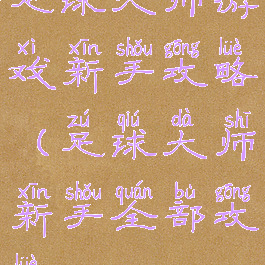 足球大师游
xì xīn shǒu gōng lüè
戏新手攻略
zú qiú dà shī
（足球大师
xīn shǒu quán bù gōng
新手全部攻
lüè